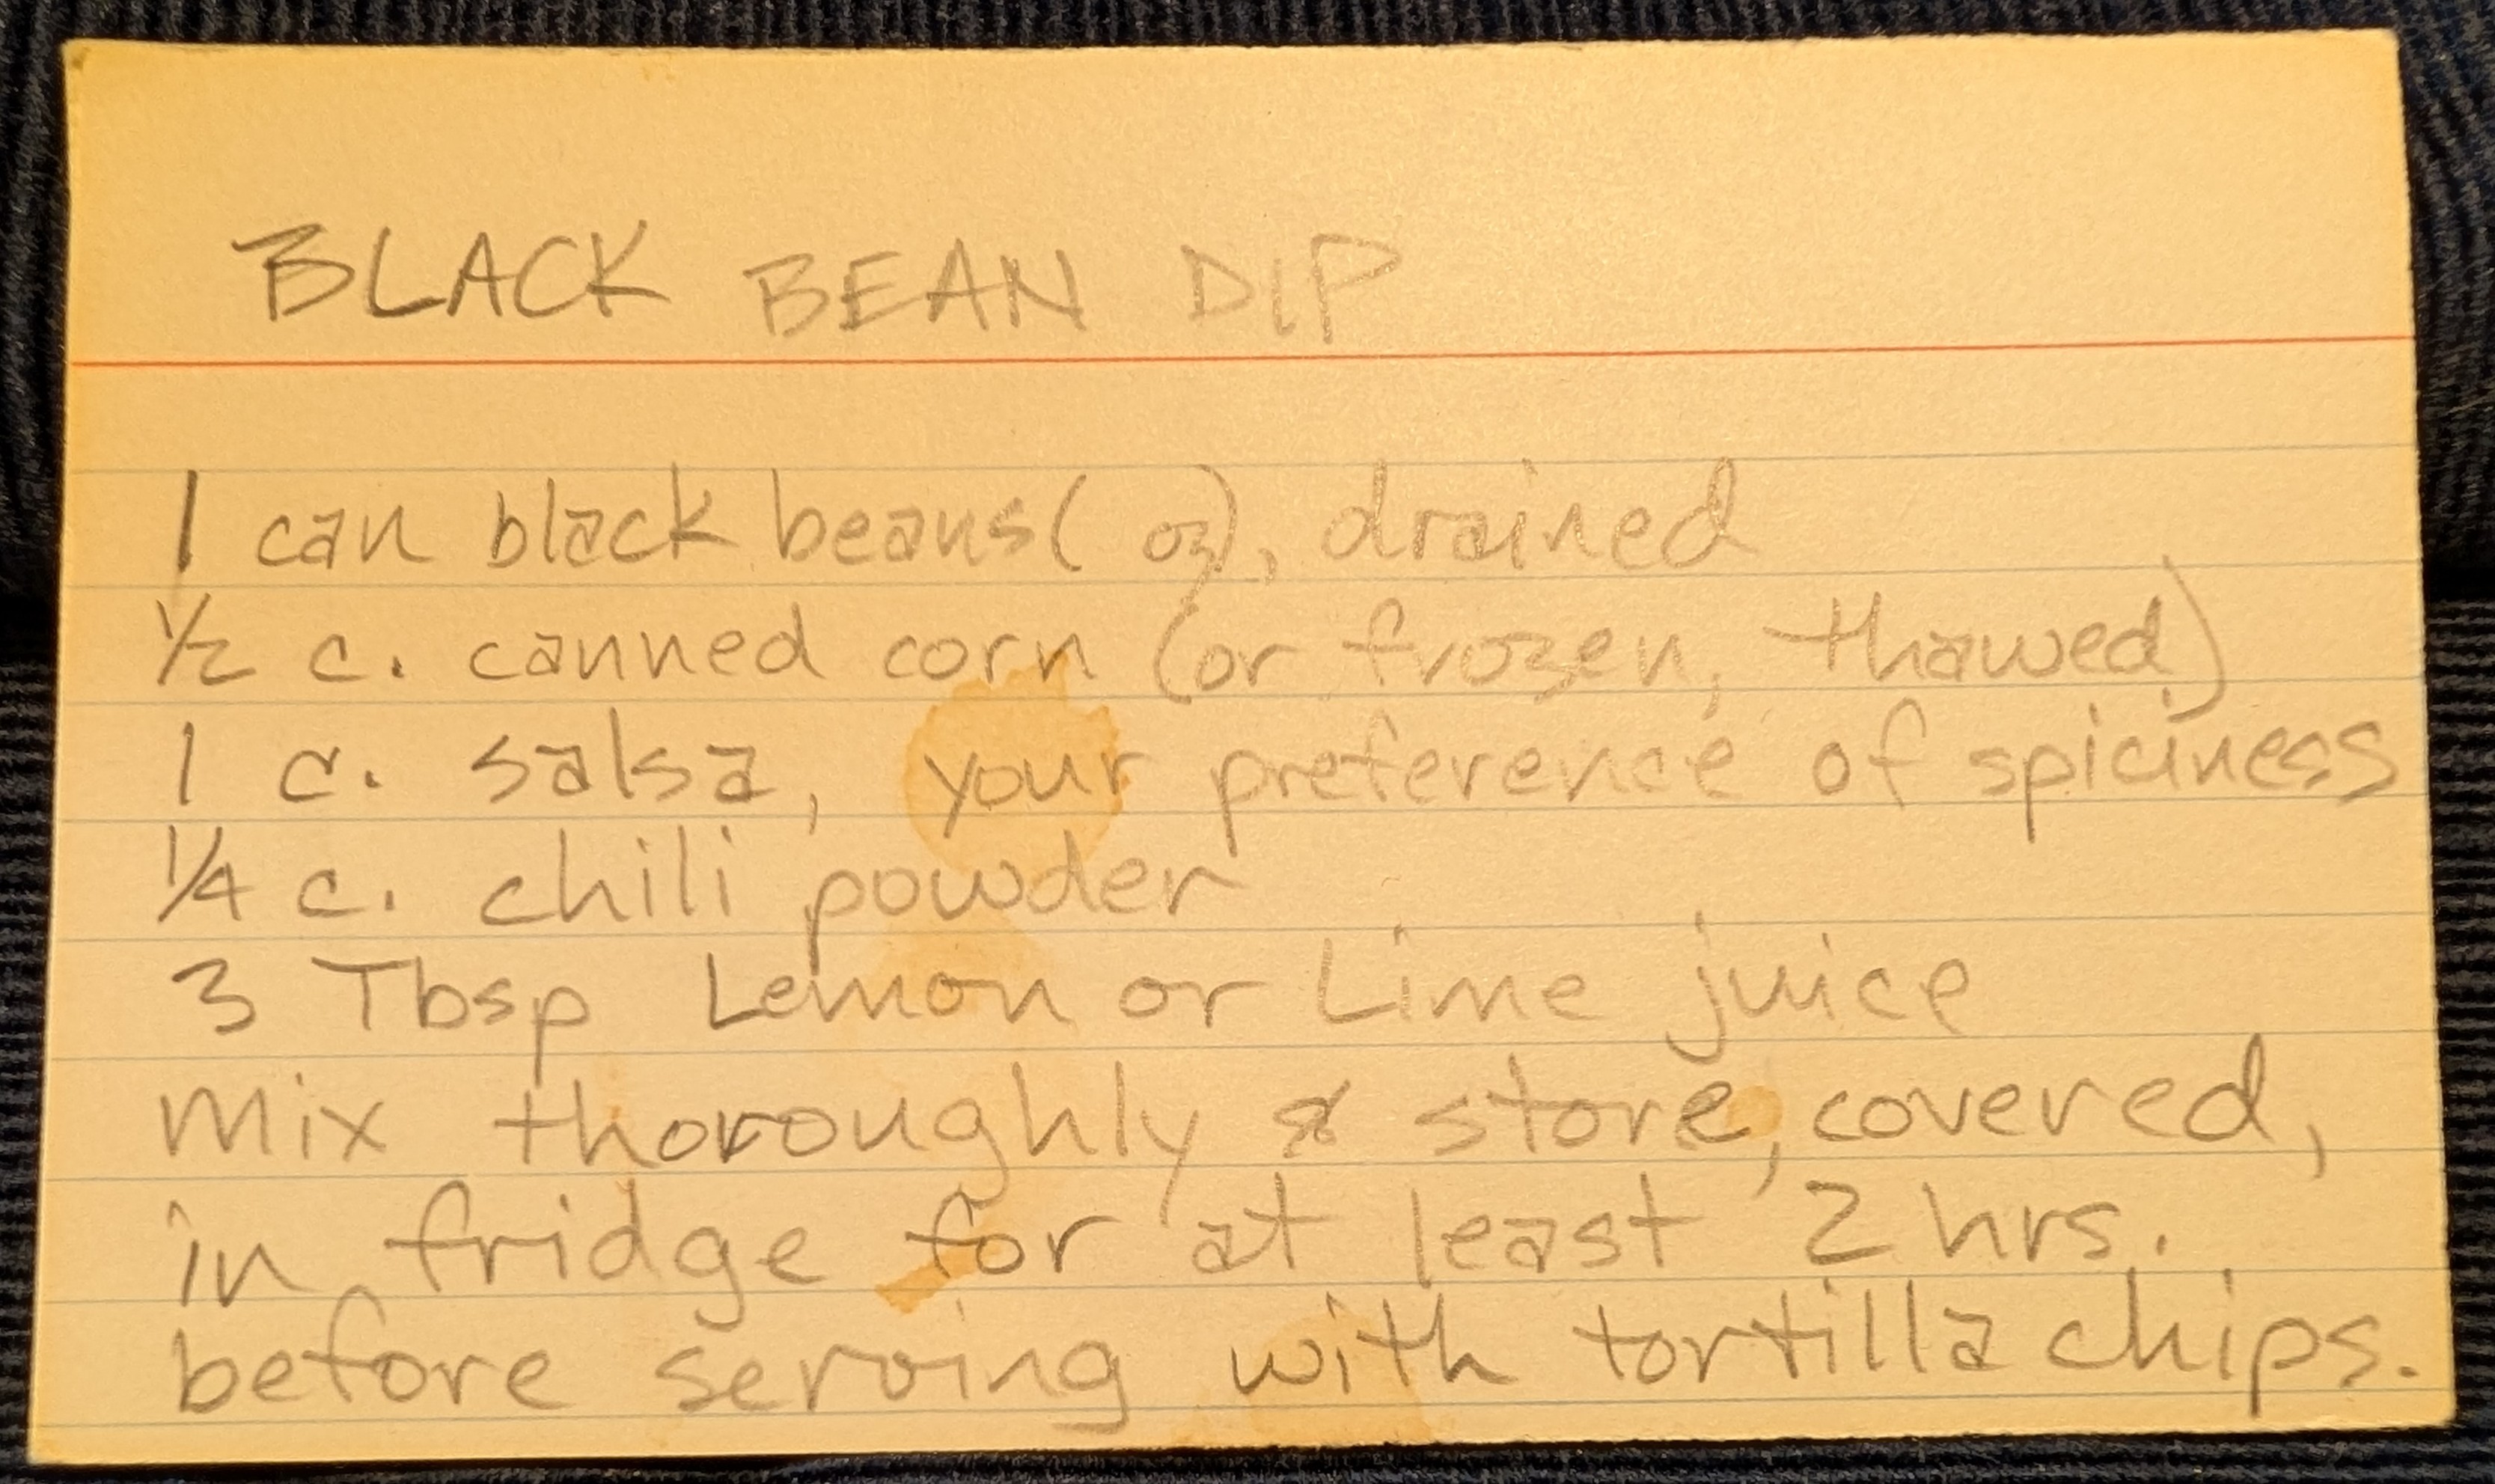 BLACK BEAN DIP
1 can black beans ( oz), drained
1/2 c. canned corn (or frozen, thawed)
1 c. salsa, your preference of spiciness
1/4 c. chili powder
3 Tbsp Lemon or Lime juice
Mix thoroughly & store, covered,
in fridge for at least 2 hrs.
before serving with tortilla chips.